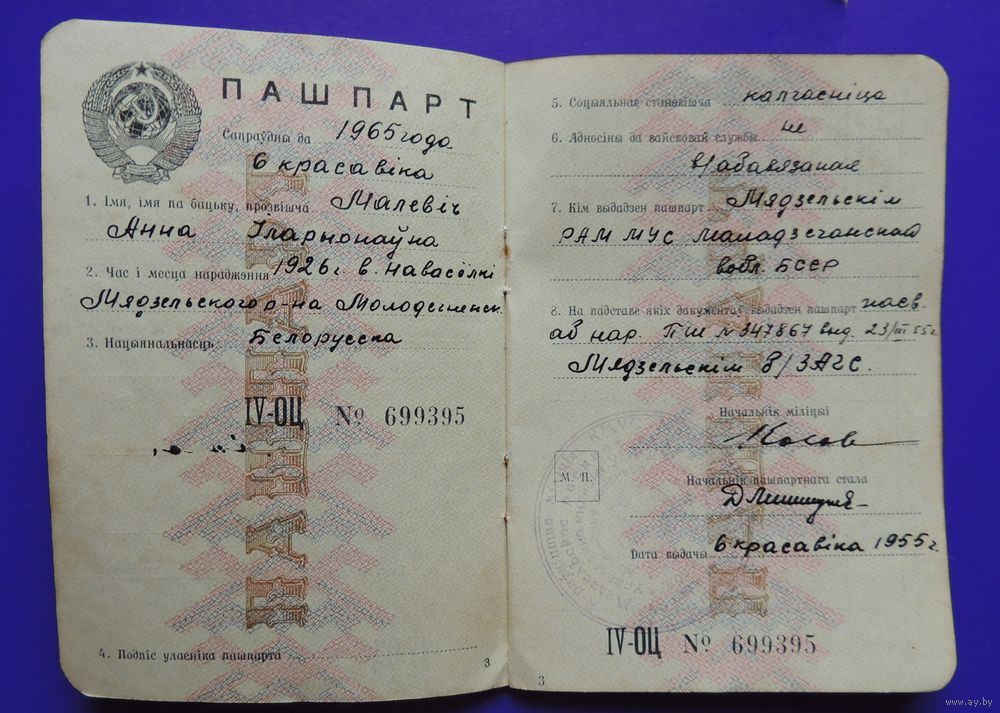 ПАШПАРТ
Сапраўдны да 1965 года
6 красавіка
1. Імя, імя па бацьку, прозвішча Малевіч
Анна Іларыонаўна
2. Час і месца нараджэння 1926 г. в. Навасёлкі
Мядзельского р-на Молодечненск.
3. Нацыянальнасць Белорусска
IV-ОЦ № 699395
4. Подпіс уласніка пашпарта
3
5. Соцыяльнае становішча калгасніца
6. Адносіны да вайсковай службы не
абавязаная
7. Кім выдадзен пашпарт Мядзельскім
РАМ МУС Маладзечанскай
вобл. БССР
8. На падставе якіх дакументаў выдадзен пашпарт пасв.
аб нар. ПШ № 347867 выд. 23/III 55 г.
Мядзельскім ЗАГС.
Начальнік міліцыі
М. П.
Начальнік пашпартнага стала
Дата выдачы 6 красавіка 1955 г.
IV-ОЦ № 699395
3
www.ay.by